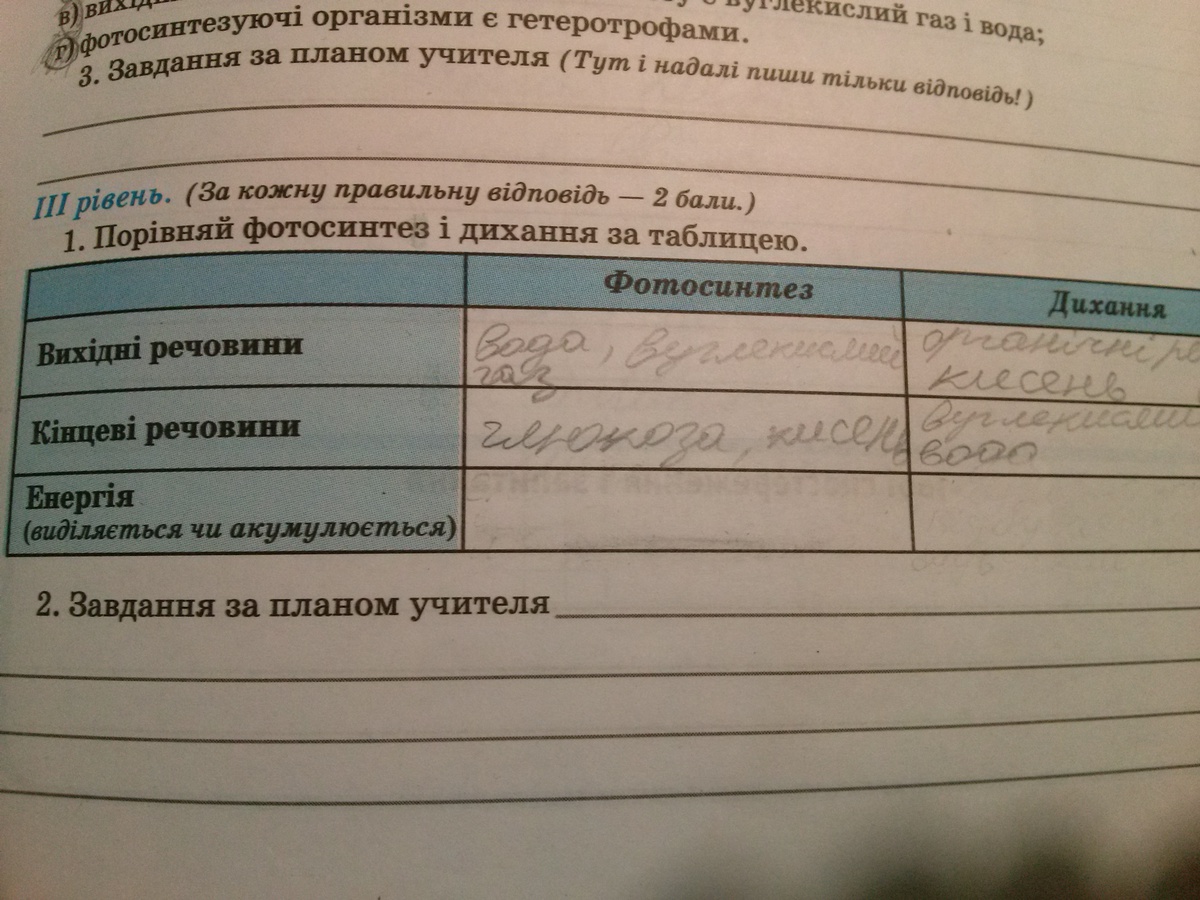 в) вихідн
вуглекислий газ і вода;
г) фотосинтезуючі організми є гетеротрофами.
3. Завдання за планом учителя (Тут і надалі пиши тільки відповідь!)
III рівень. (За кожну правильну відповідь — 2 бали.)
1. Порівняй фотосинтез і дихання за таблицею.
Фотосинтез
Дихання
Вихідні речовини
вода, вуглекислий
газ
органічні ре
кисень
Кінцеві речовини
глюкоза, кисень
вуглекислий
вода
Енергія
(виділяється чи акумулюється)
2. Завдання за планом учителя